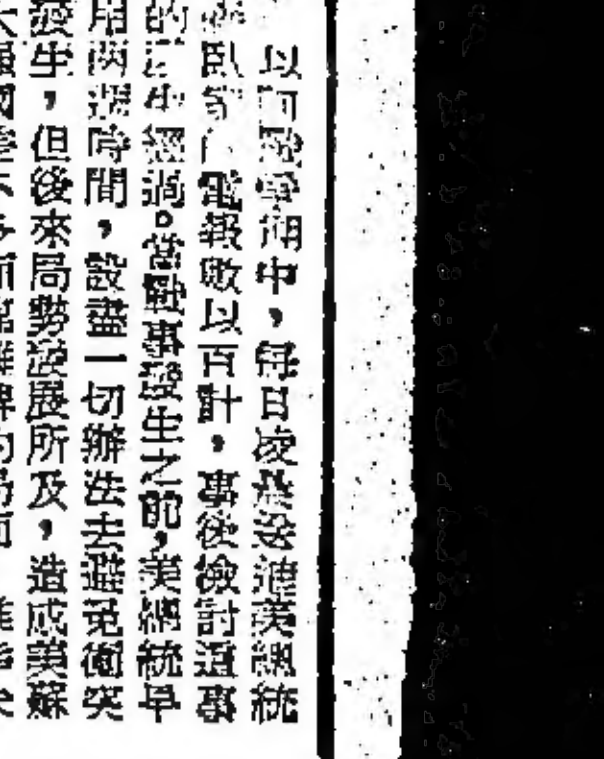 以阿戰爭期中，每日凌晨送達美總統
臥室的電報數以百計，事後檢討這事
的發生經過。當戰事發生之前，美總統早
用兩題時間，設盡一切辦法去避免衝突
發生，但後來局勢發展所及，造成美蘇
大強國差不多而